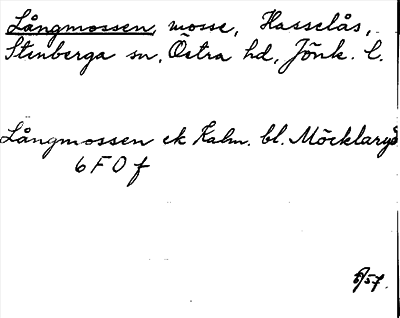 Långmossen, mosse, Hasselås,
Stenberga sn, Östra hd, Jönk. l.
Långmossen ek Kalm. bl. Möcklarys
6 F 0 f
6/57.